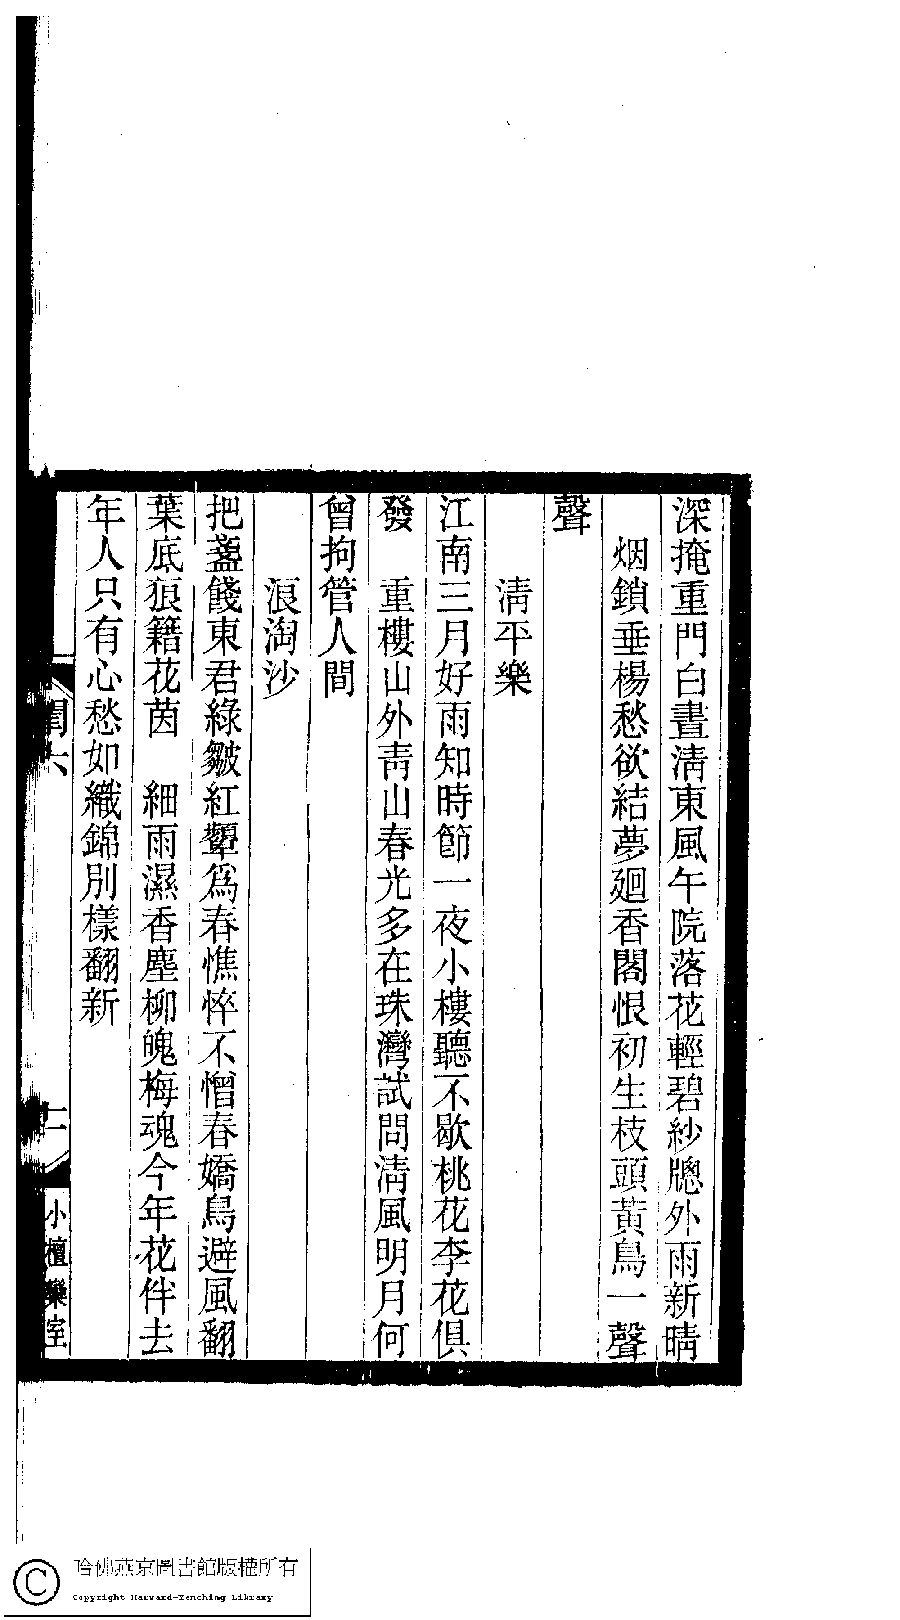 深掩重門白晝淸東風午院落花輕碧紗牕外雨新晴
烟鎖垂楊愁欲結夢廻香閣恨初生枝頭黃鳥一聲
聲
淸平樂
江南三月好雨知時節一夜小樓聽不歇桃花李花俱
發　重樓山外靑山春光多在珠灣試問淸風明月何
曾拘管人間
浪淘沙
把盞餞東君綠皺紅顰爲春憔悴不憎春嬌鳥避風翻
葉底狼籍花茵　細雨濕香塵柳魄梅魂今年花伴去
年人只有心愁如織錦別樣翻新
閨六
二
小檀欒室
哈佛燕京圖書館版權所有
Copyright Harvard-Yenching Library